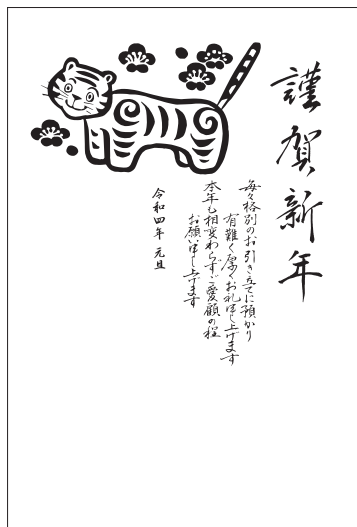 謹賀新年
毎々格別のお引き立てに預かり
有難く厚くお礼申し上げます
本年も相変わらずご愛顧の程
お願い申し上げます
令和四年 元旦